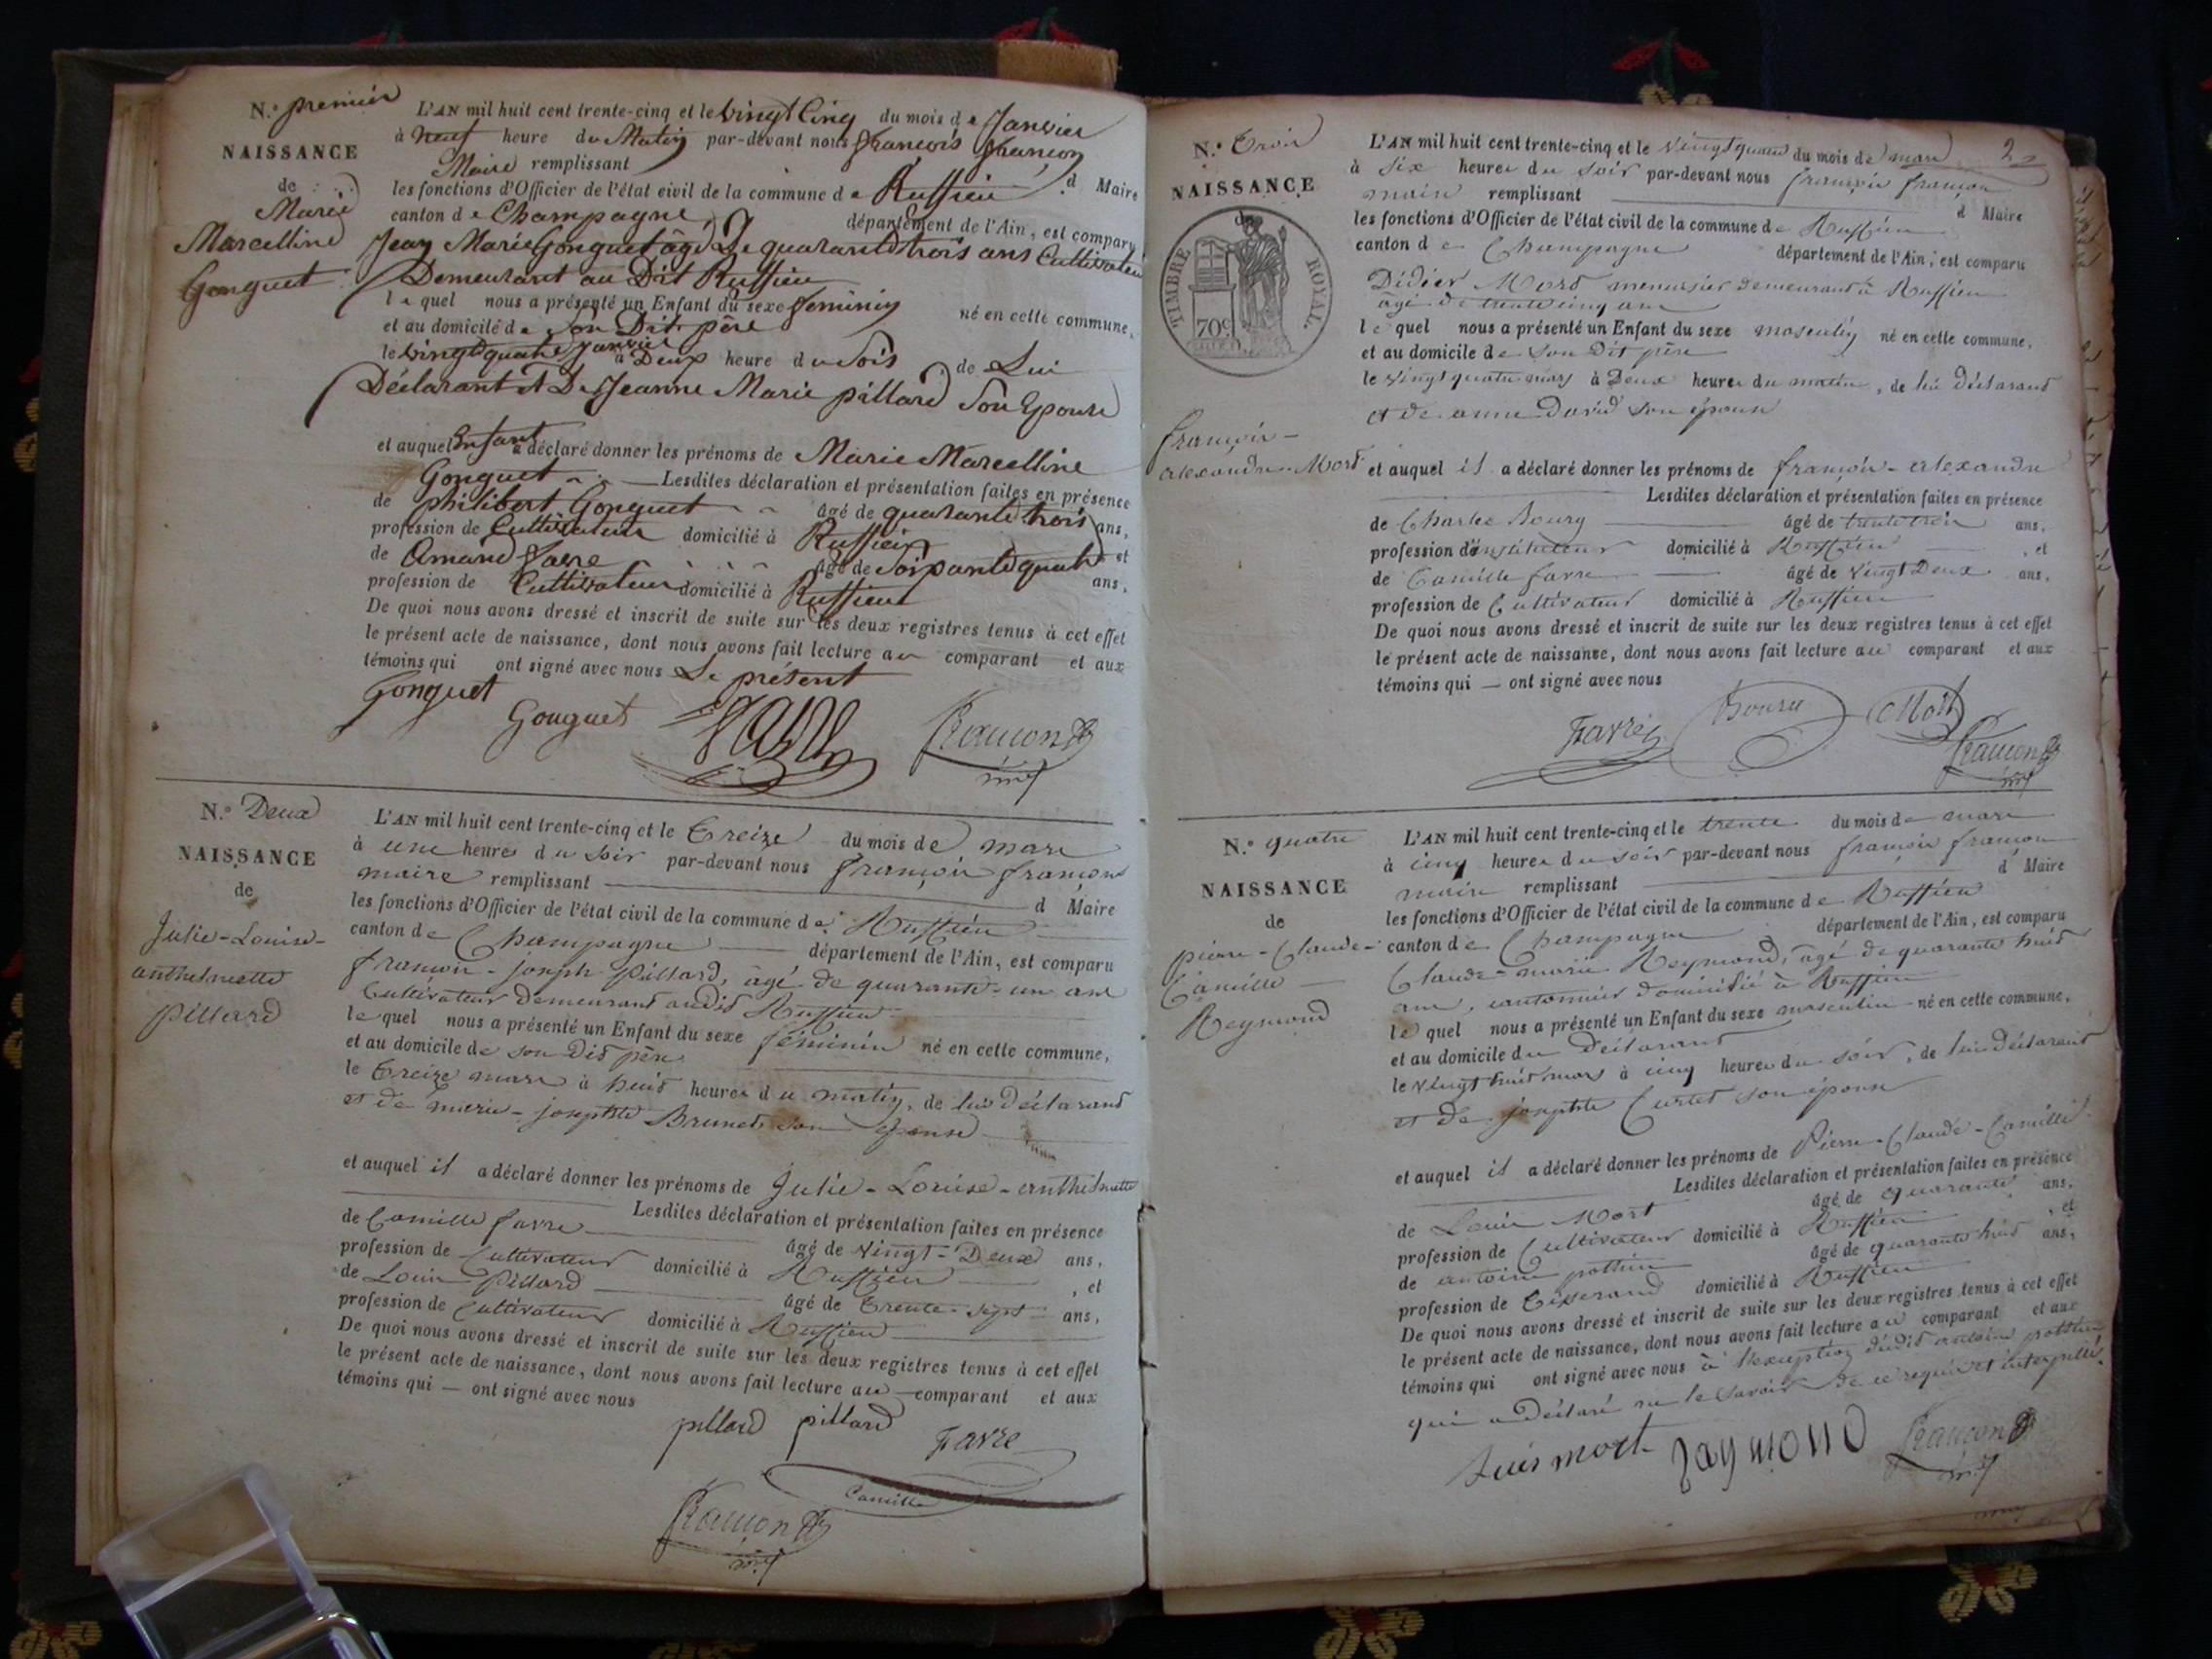 N.º premier
NAISSANCE
de
Marie
Marcelline
Gonguet
L'AN mil huit cent trente-cinq et le vingt Cinq du mois de Janvier
à neuf heure du Matin par-devant nous François françon
Maire remplissant d Maire
les fonctions d'Officier de l'état civil de la commune de Ruffieu
canton de Champagne département de l'Ain, est comparu
Jean Marie Gonguet âgé De quarante trois ans Cultivateur
Demeurant au Dit Ruffieu
le quel nous a présenté un Enfant du sexe feminin né en cette commune,
et au domicile de Son Dit père
le vingt quatre janvier à Deux heure du Soir de Lui
Déclarant et De Jeanne Marie pillard Son Epouse
et auquel Enfant a déclaré donner les prénoms de Marie Marcelline
Gonguet Lesdites déclaration et présentation faites en présence
de philibert Gonguet âgé de quarante trois ans,
profession de Cultivateur domicilié à Ruffieu et
de Amand favre âgé de Soixante quatre ans,
profession de Cultivateur domicilié à Ruffieu
De quoi nous avons dressé et inscrit de suite sur les deux registres tenus à cet effet
le présent acte de naissance, dont nous avons fait lecture au comparant et aux
témoins qui ont signé avec nous Le présent
Gonguet Gonguet
N.º Deux
NAISSANCE
de
Julie-Louise-
anthelmette
Pillard
L'AN mil huit cent trente-cinq et le Treize du mois de mars
à une heure du soir par-devant nous françois françon
maire remplissant d Maire
les fonctions d'Officier de l'état civil de la commune de Ruffieu
canton de Champagne département de l'Ain, est comparu
françois-joseph Pillard, âgé de quarante-un ans
Cultivateur demeurant audit Ruffieu
le quel nous a présenté un Enfant du sexe féminin né en cette commune,
et au domicile de son dit père
le Treize mars à huit heures du matin, de lui déclarant
et de marie-josephte Brunet son épouse
et auquel il a déclaré donner les prénoms de Julie-Louise-anthelmette
Lesdites déclaration et présentation faites en présence
de Camille favre âgé de vingt-Deux ans,
profession de Cultivateur domicilié à Ruffieu, et
de Louis Pillard âgé de Trente-sept ans,
profession de Cultivateur domicilié à Ruffieu
De quoi nous avons dressé et inscrit de suite sur les deux registres tenus à cet effet
le présent acte de naissance, dont nous avons fait lecture au comparant et aux
témoins qui — ont signé avec nous
pillard pillard Favre
Camille
2
N.º Trois
NAISSANCE
de
TIMBRE ROYAL.
70c
françois-
alexandre-Mort
L'AN mil huit cent trente-cinq et le vingt quatre du mois de mars
à six heures du soir par-devant nous françois françon
maire remplissant d Maire
les fonctions d'Officier de l'état civil de la commune de Ruffieu
canton de Champagne département de l'Ain, est comparu
Didier Mort menuisier demeurant à Ruffieu
âgé de trente cinq ans
le quel nous a présenté un Enfant du sexe masculin né en cette commune,
et au domicile de son dit père
le vingt quatre mars à Deux heures du matin, de lui déclarant
et de anne david son épouse
et auquel il a déclaré donner les prénoms de françois-alexandre
Lesdites déclaration et présentation faites en présence
de Charles Boury âgé de trente trois ans,
profession d'instituteur domicilié à Ruffieu, et
de Camille favre âgé de vingt Deux ans,
profession de Cultivateur domicilié à Ruffieu
De quoi nous avons dressé et inscrit de suite sur les deux registres tenus à cet effet
le présent acte de naissance, dont nous avons fait lecture au comparant et aux
témoins qui — ont signé avec nous
Favre Boury Mort
N.º quatre
NAISSANCE
de
pierre-Claude-
Camille
Reymond
L'AN mil huit cent trente-cinq et le trente du mois de mars
à cinq heures du soir par-devant nous françois françon
maire remplissant d Maire
les fonctions d'Officier de l'état civil de la commune de Ruffieu
canton de Champagne département de l'Ain, est comparu
Claude-marie Reymond, âgé de quarante huit
ans, cantonnier domicilié à Ruffieu
le quel nous a présenté un Enfant du sexe masculin né en cette commune,
et au domicile du déclarant
le vingt huit mars à cinq heures du soir, de lui déclarant
et de josephte Curtet son épouse
et auquel il a déclaré donner les prénoms de Pierre-Claude-Camille
Lesdites déclaration et présentation faites en présence
de Louis Mort âgé de quarante ans,
profession de Cultivateur domicilié à Ruffieu, et
de antoine pothin âgé de quarante huit ans,
profession de Tisserand domicilié à Ruffieu
De quoi nous avons dressé et inscrit de suite sur les deux registres tenus à cet effet
le présent acte de naissance, dont nous avons fait lecture au comparant et aux
témoins qui ont signé avec nous à l'exception dudit antoine pothin
qui a déclaré ne le savoir de ce requis et interpellé.
Luis mort Raymond